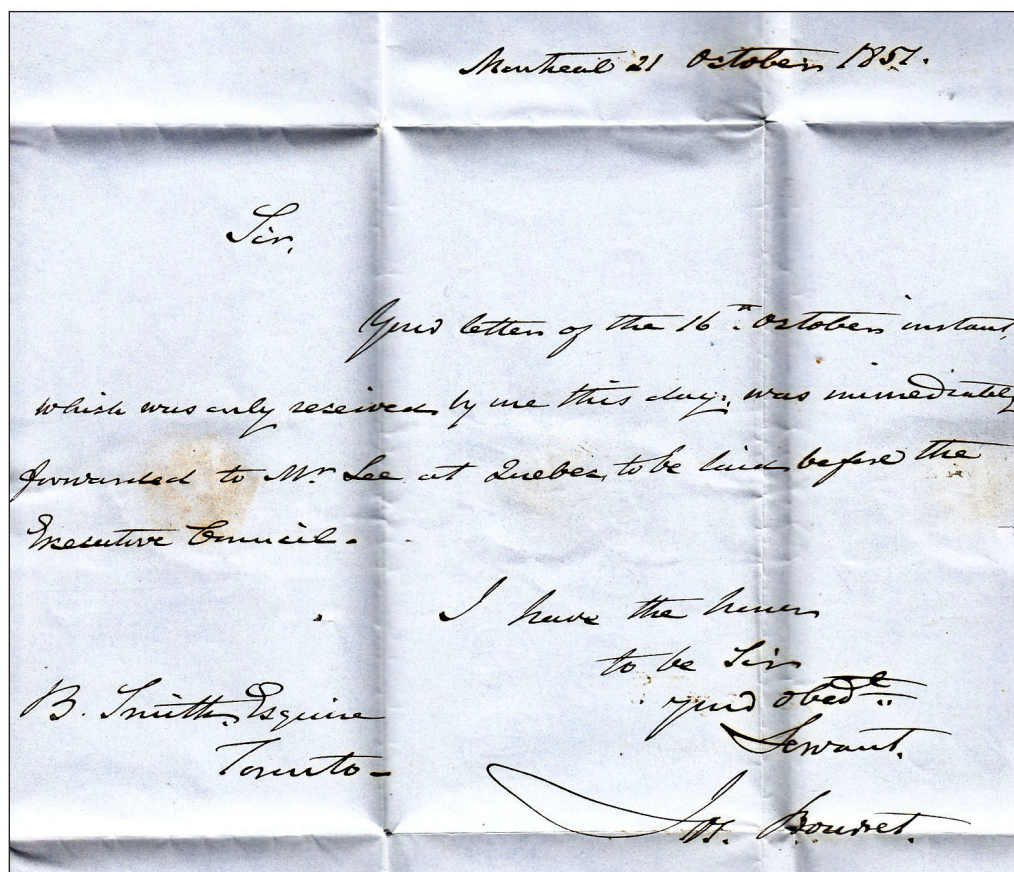 Montreal 21 October 1851.
Sir,
Your letter of the 16th October instant,
which was only received by me this day, was immediately
forwarded to Mr. Lee at Quebec, to be laid before the
Executive Council.
I have the honor
to be Sir
your obedt
Servant.
B. Smith, Esquire
Toronto
Jos. Bourret.